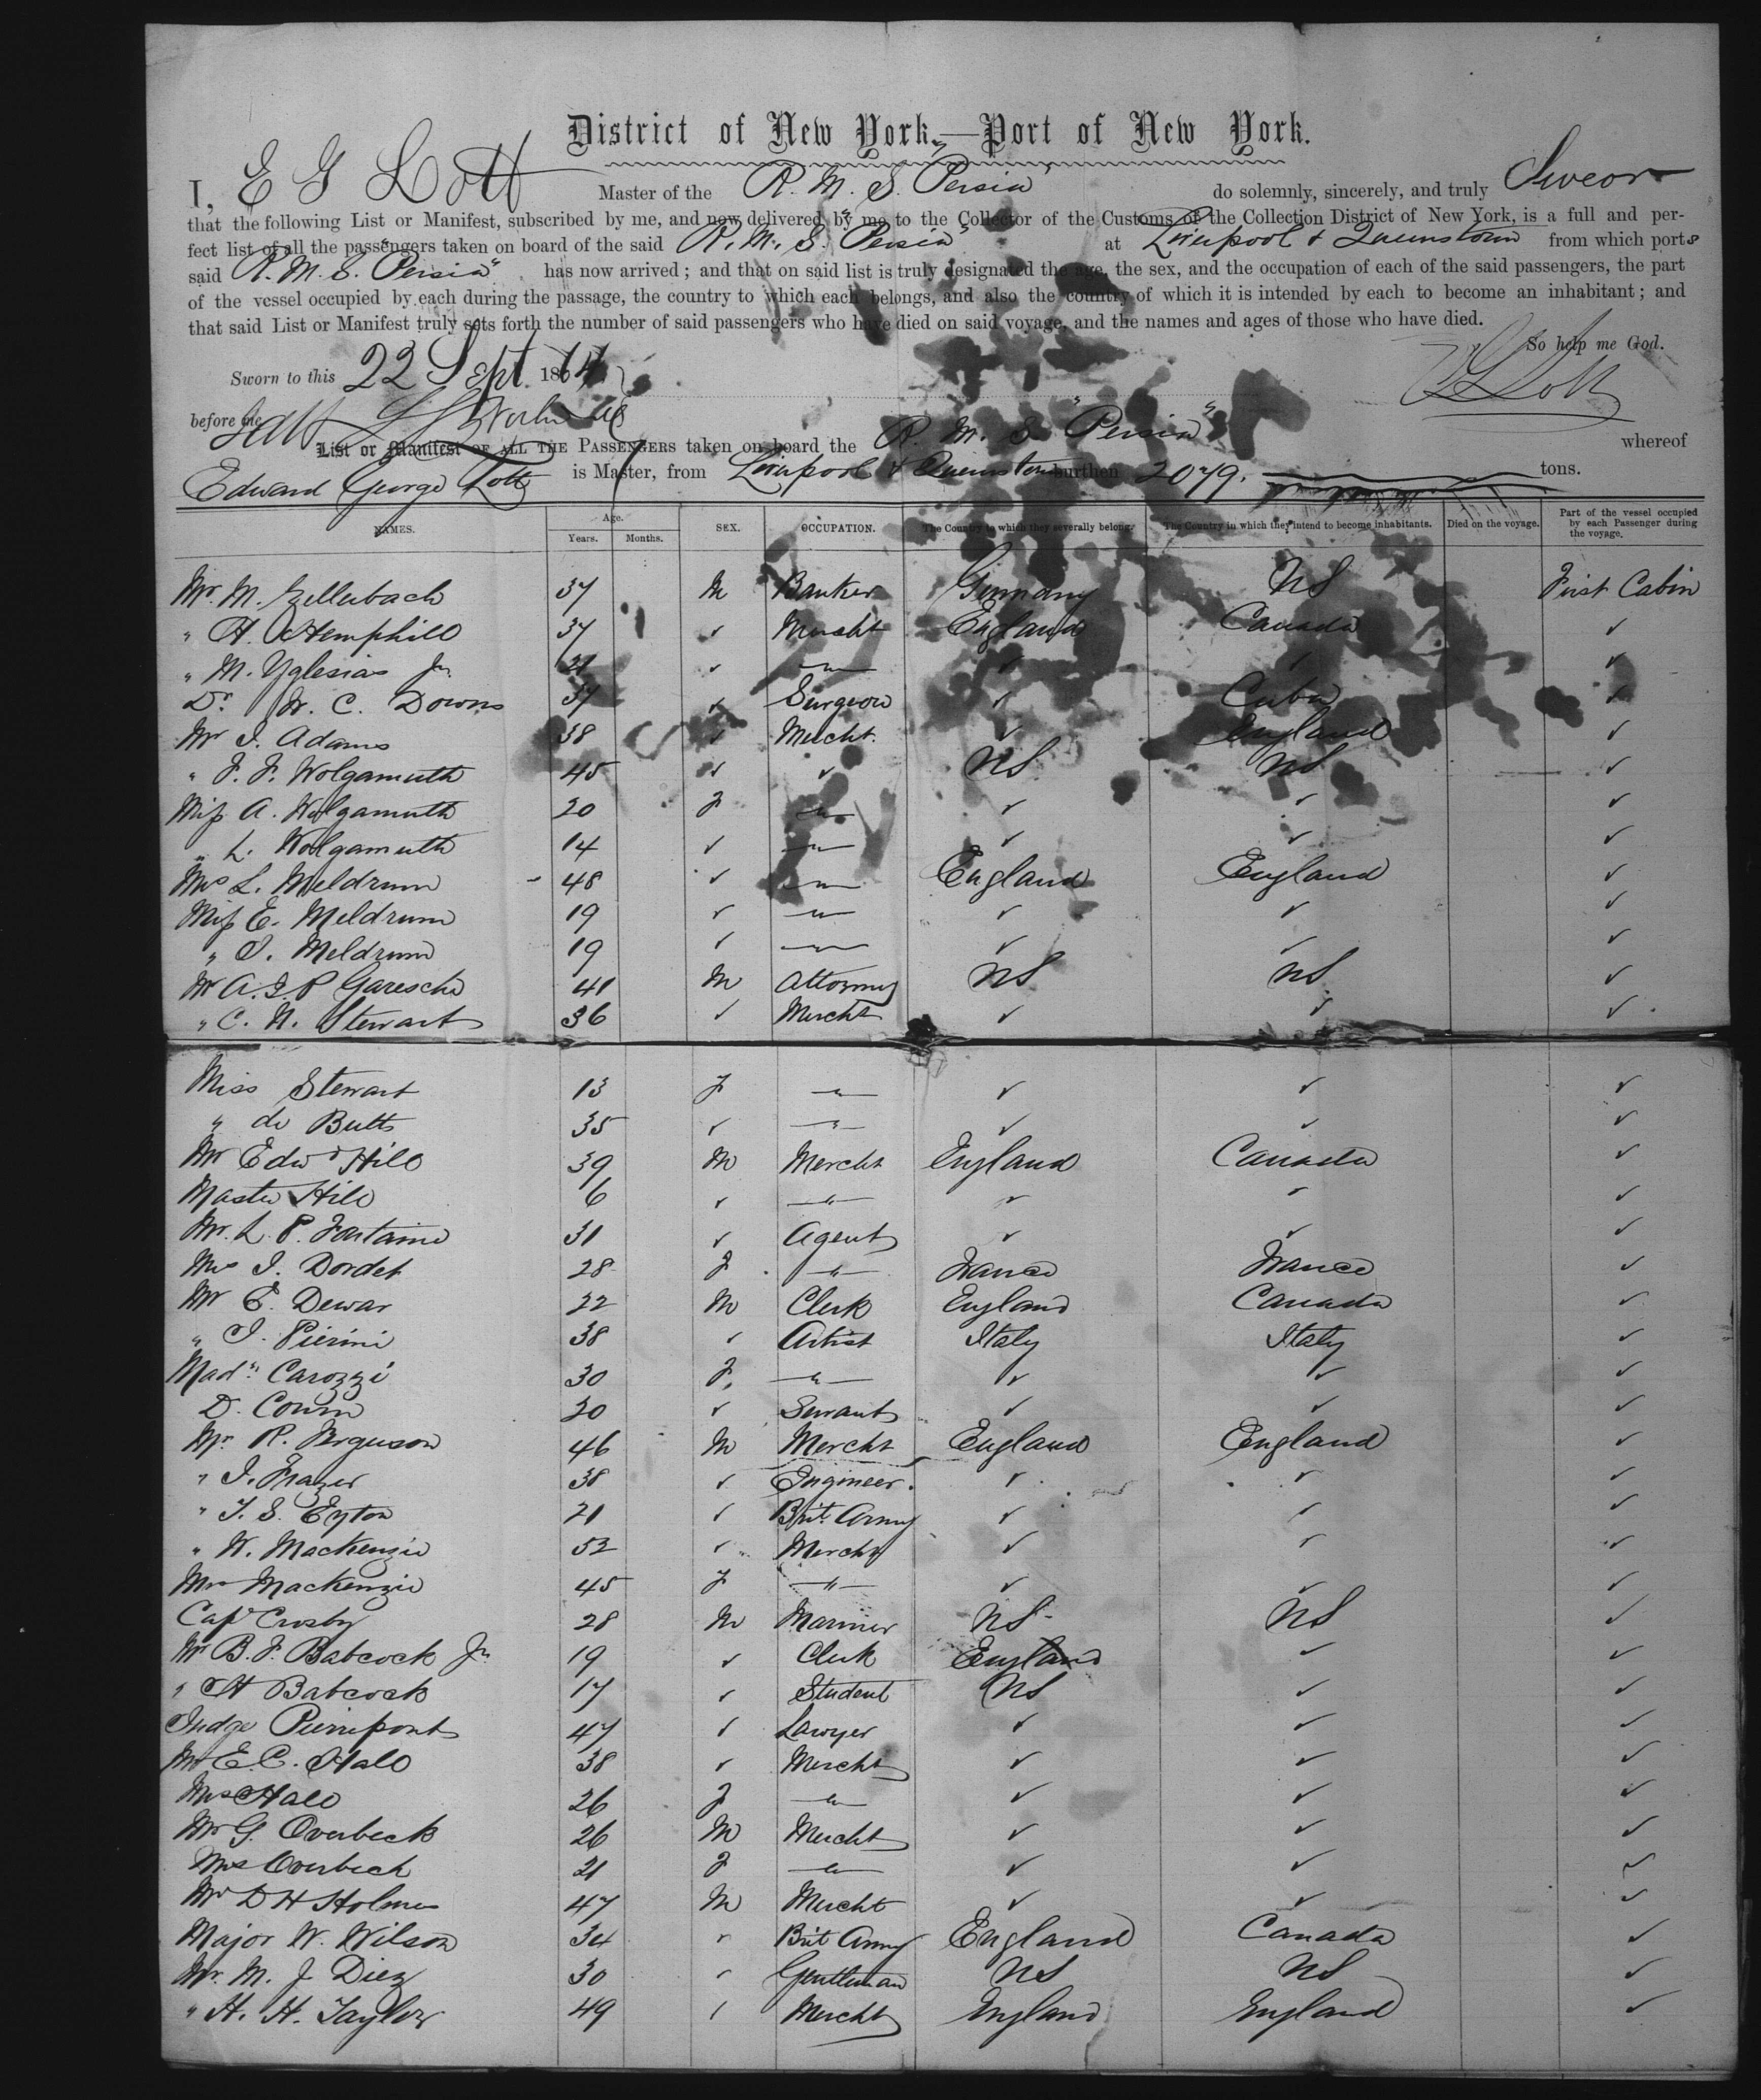 District of New York,—Port of New York.
I, E G Lott Master of the R. M. S. "Persia" do solemnly, sincerely, and truly Swear
that the following List or Manifest, subscribed by me, and now delivered by me to the Collector of the Customs of the Collection District of New York, is a full and per-
fect list of all the passengers taken on board of the said R. M. S. "Persia" at Liverpool & Queenstown from which ports
said R. M. S. "Persia" has now arrived; and that on said list is truly designated the age, the sex, and the occupation of each of the said passengers, the part
of the vessel occupied by each during the passage, the country to which each belongs, and also the country of which it is intended by each to become an inhabitant; and
that said List or Manifest truly sets forth the number of said passengers who have died on said voyage, and the names and ages of those who have died.
So help me God.
Sworn to this 22 Sept 1864
E G Lott
before me
List or Manifest OF ALL THE PASSENGERS taken on board the R. M. S. "Persia" whereof
Edward George Lott is Master, from Liverpool & Queenstown burthen 2079. tons.
NAMES. Age. Years. Months. SEX. OCCUPATION. The Country to which they severally belong. The Country in which they intend to become inhabitants. Died on the voyage. Part of the vessel occupied by each Passenger during the voyage.
Mr. M. Zellerbach 37 M Banker Germany US First Cabin
" H. Hemphill 37 ✓ Mercht England Canada ✓
" M. Yglesias Jr. 21 ✓ —"— ✓ ✓ ✓
Dr. W. C. Downs 37 ✓ Surgeon ✓ Cuba ✓
Mr J. Adams 38 ✓ Mercht. ✓ England ✓
" J. F. Wolgamuth 45 ✓ ✓ US US ✓
Miss A. Wolgamuth 20 F —"— ✓ ✓ ✓
" L. Wolgamuth 14 ✓ —"— ✓ ✓ ✓
Mrs L. Meldrum 48 ✓ —"— England England ✓
Miss E. Meldrum 19 ✓ —"— ✓ ✓ ✓
" J. Meldrum 19 ✓ —"— ✓ ✓ ✓
Mr A. J P Garesche 41 M Attorney US US ✓
" C. N. Stewart 36 ✓ Mercht ✓ ✓ ✓
Miss Stewart 13 F —"— ✓ ✓ ✓
" de Butts 35 ✓ —"— ✓ ✓ ✓
Mr Edwd Hill 39 M Mercht England Canada ✓
Master Hill 6 ✓ —"— ✓ ✓ ✓
Mr. L. P. Fontaine 31 ✓ Agent ✓ ✓ ✓
Mrs J. Dordet 28 F —"— France France ✓
Mr E. Dewar 22 M Clerk England Canada ✓
" J. Pierini 38 ✓ Artist Italy Italy ✓
Madm Carozzi 30 F. —"— ✓ ✓ ✓
D. Cowin 30 ✓ Servant ✓ ✓ ✓
Mr. R. Ferguson 46 M Mercht England England ✓
" J. Frazer 38 ✓ Engineer. ✓ ✓ ✓
" T. S. Eyton 21 ✓ Brit. Army ✓ ✓ ✓
" W. Mackenzie 52 ✓ Mercht ✓ ✓ ✓
Mrs Mackenzie 45 F —"— ✓ ✓ ✓
Capt Crosby 28 M Mariner US US ✓
Mr B. F. Babcock Jr. 19 ✓ Clerk England ✓ ✓
" H Babcock 17 ✓ Student US ✓ ✓
Judge Pierrepont 47 ✓ Lawyer ✓ ✓ ✓
Mr E. C. Hale 38 ✓ Mercht ✓ ✓ ✓
Mrs Hale 26 F —"— ✓ ✓ ✓
Mr G. Overbeck 26 M Mercht ✓ ✓ ✓
Mrs Overbeck 21 F —"— ✓ ✓ ✓
Mr D H Holmes 47 M Mercht ✓ ✓ ✓
Major W. Wilson 34 ✓ Brit Army England Canada ✓
Mr. M. J Diez 30 ✓ Gentleman US US ✓
" H. H. Taylor 49 ✓ Mercht England England ✓